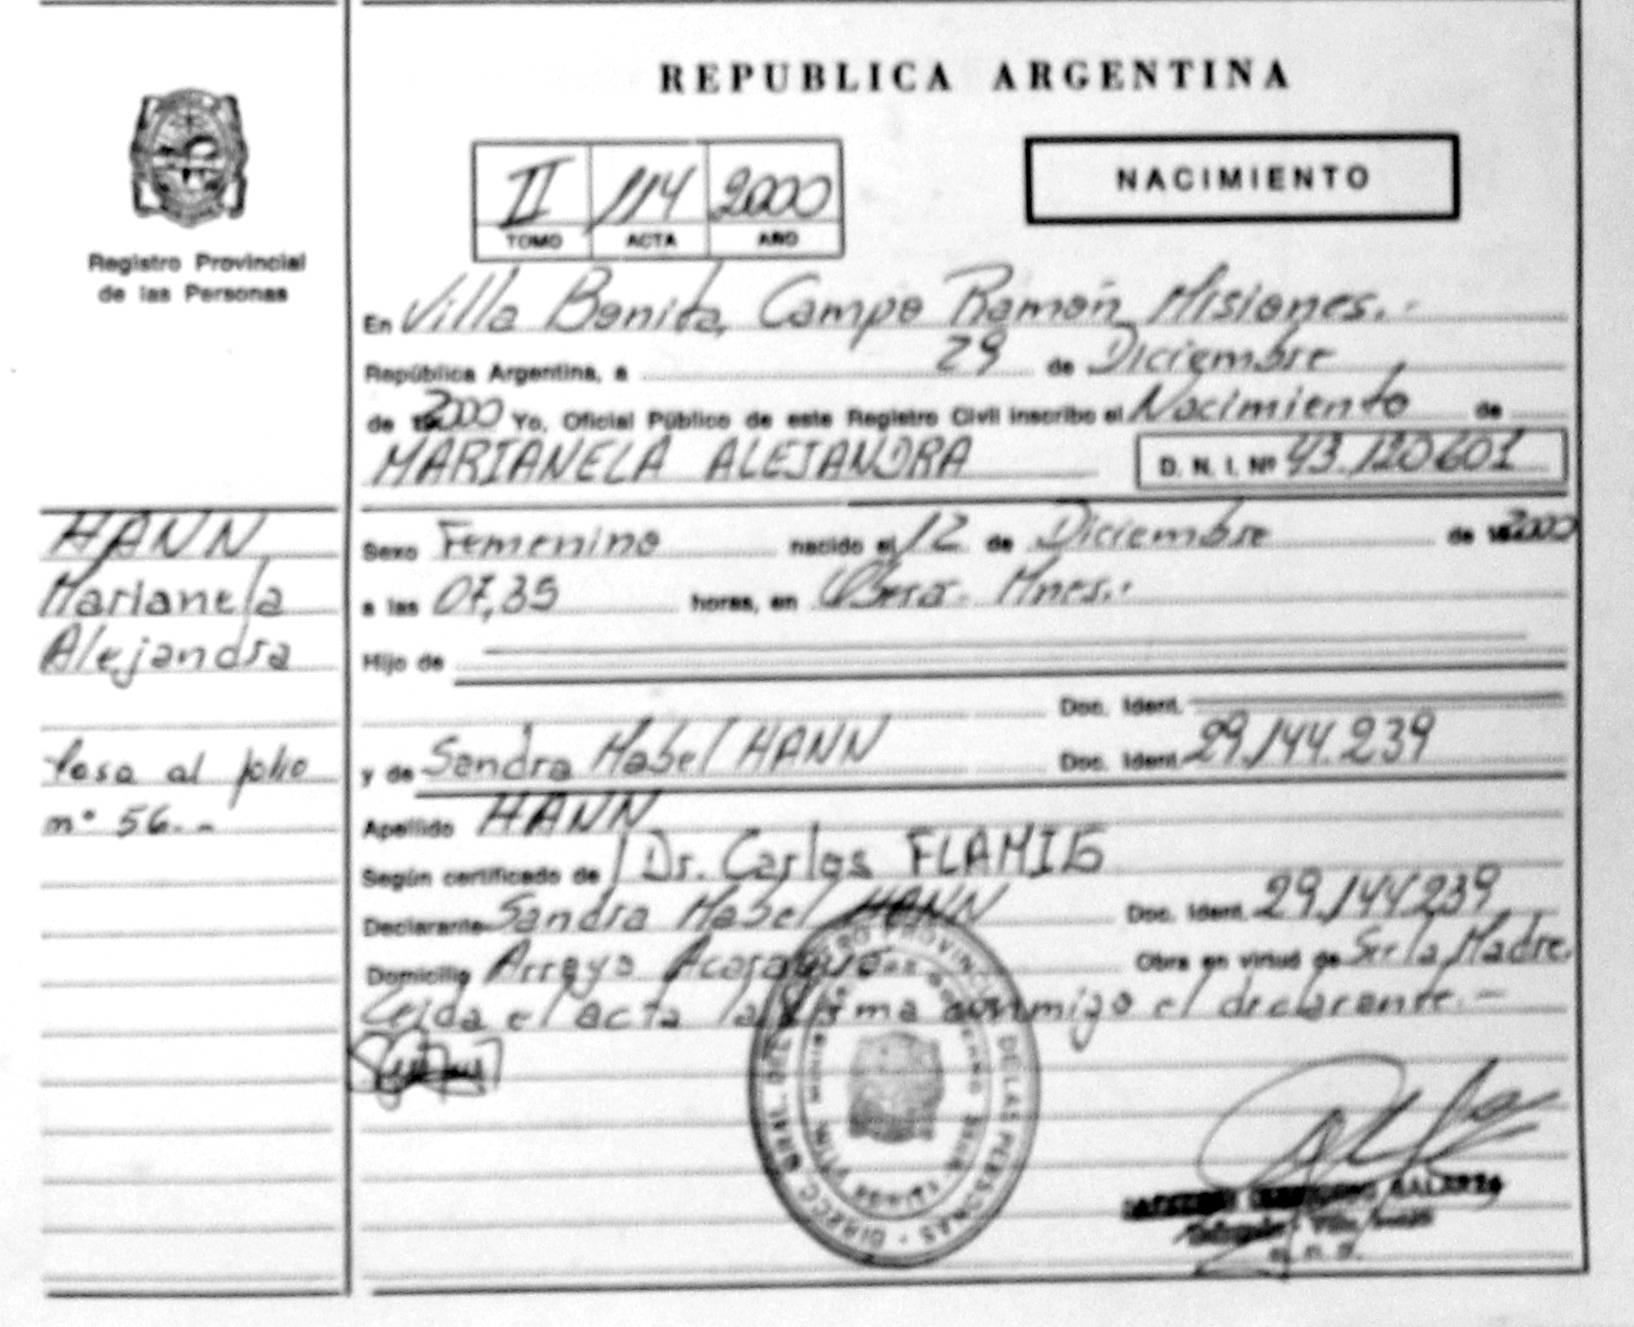 REPUBLICA ARGENTINA
Registro Provincial
de las Personas
II 114 2000
TOMO ACTA AÑO
NACIMIENTO
En Villa Bonita, Campo Ramón, Misiones.-
República Argentina, a 29 de Diciembre
de 2000 Yo, Oficial Público de este Registro Civil inscribo el Nacimiento de
MARIANELA ALEJANDRA D. N. I. Nº 43.120.601
HANN,
Marianela
Alejandra
Sexo Femenino nacido el 12 de Diciembre de 2000
a las 07,35 horas, en Oberá- Mnes.-
Hijo de
Doc. Ident.
y de Sandra Mabel HANN Doc. Ident. 29.144.239
Pasa al folio
nº 56.-
Apellido HANN
Según certificado de Dr. Carlos FLAMIG
Declarante Sandra Mabel HANN Doc. Ident. 29.144.239
Domicilio Arroyo Acaraguá Obra en virtud de Ser la Madre.
Leida el acta la firma conmigo el declarante.-
PROVINCIAL DE LAS PERSONAS